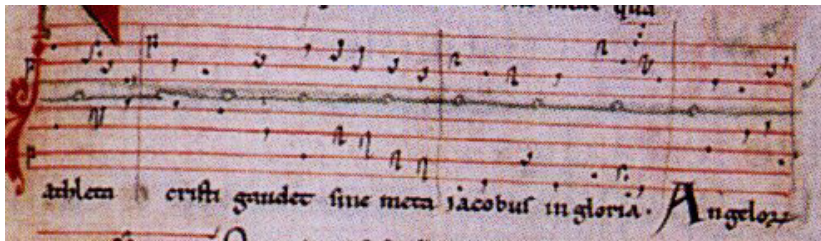 qua
athleta cristi gaudet sine meta iacobus in gloria. Angelorꝝ